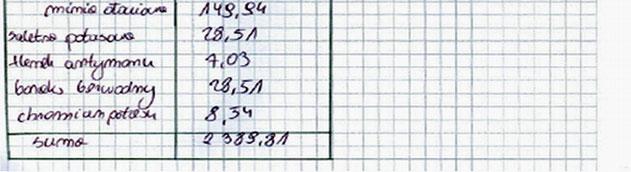 minia ołowiowa 149,94
saletra potasowa 28,51
tlenek antymonu 7,03
boraks bezwodny 28,51
chromian potasu 8,54
suma 2 389,81